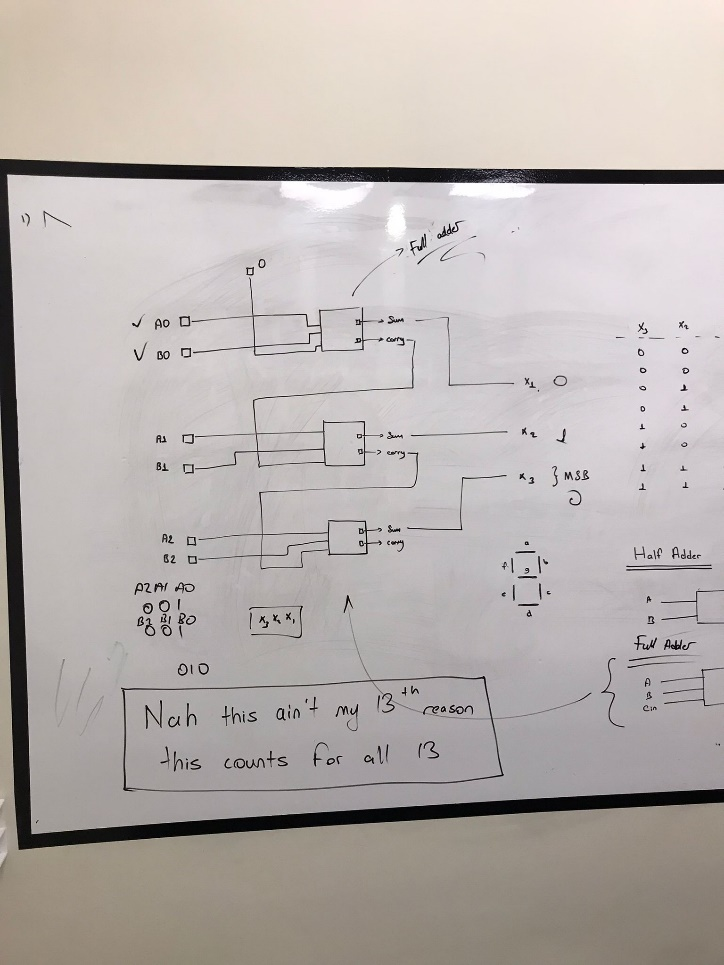 1)
0
Full adder
A0
B0
Sum
carry
x1. 0
A1
B1
Sum
carry
x2 1
x3 } MSB
0
A2
B2
Sum
carry
A2 A1 A0
0 0 1
B2 B1 B0
0 0 1
x3 x2 x1
010
a
f g b
e c
d
x3 x2
0 0
0 0
0 1
0 1
1 0
1 0
1 1
1 1
Half Adder
A
B
Full Adder
A
B
Cin
Nah this ain't my 13th reason
this counts for all 13